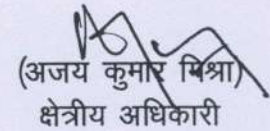 (अजय कुमार मिश्रा)
क्षेत्रीय अधिकारी